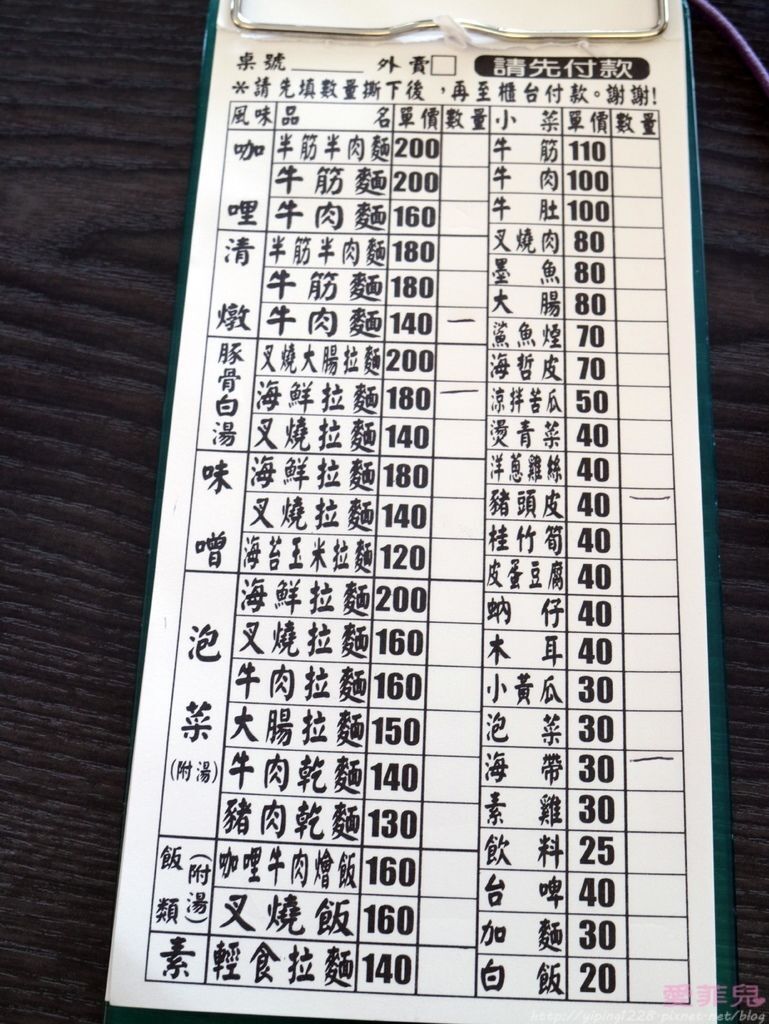 桌號______ 外賣□ 請先付款
*請先填數量撕下後，再至櫃台付款。謝謝!
風味 品名 單價 數量 小菜 單價 數量
咖哩 半筋半肉麵 200 牛筋 110
牛筋麵 200 牛肉 100
牛肉麵 160 牛肚 100
清燉 半筋半肉麵 180 叉燒肉 80
牛筋麵 180 墨魚 80
牛肉麵 140 一 大腸 80
豚骨白湯 叉燒大腸拉麵 200 鯊魚煙 70
海鮮拉麵 180 一 海哲皮 70
叉燒拉麵 140 涼拌苦瓜 50
味噌 海鮮拉麵 180 燙青菜 40
叉燒拉麵 140 洋蔥雞絲 40
海苔玉米拉麵 120 豬頭皮 40 一
泡菜(附湯) 海鮮拉麵 200 桂竹筍 40
叉燒拉麵 160 皮蛋豆腐 40
牛肉拉麵 160 蚋仔 40
大腸拉麵 150 木耳 40
牛肉乾麵 140 小黃瓜 30
豬肉乾麵 130 泡菜 30
飯類(附湯) 咖哩牛肉燴飯 160 海帶 30 一
叉燒飯 160 素雞 30
素 輕食拉麵 140 飲料 25
台啤 40
加麵 30
白飯 20
愛菲兒
http://yiping1228.pixnet.net/blog